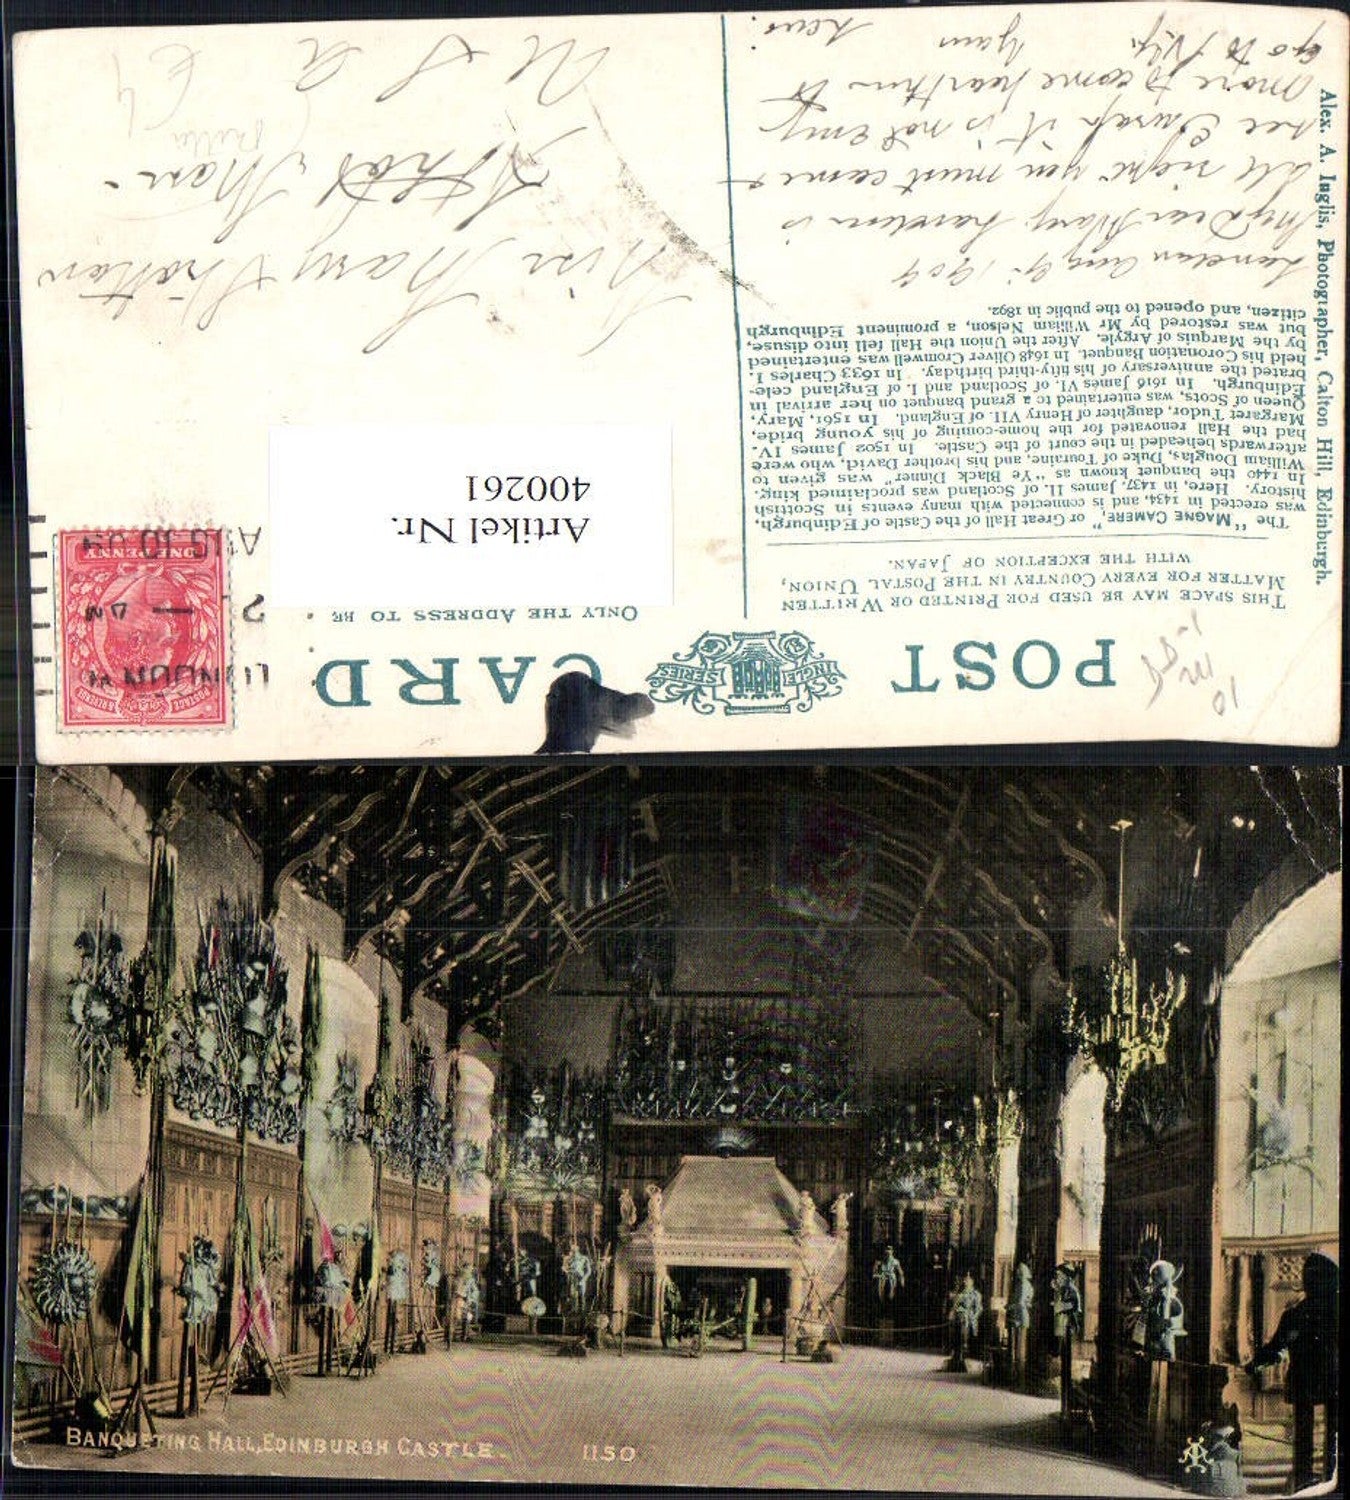 POST CARD
INGLIS SERIES
THIS SPACE MAY BE USED FOR PRINTED OR WRITTEN
MATTER FOR EVERY COUNTRY IN THE POSTAL UNION,
WITH THE EXCEPTION OF JAPAN.
ONLY THE ADDRESS TO BE
The "MAGNE CAMERE," or Great Hall of the Castle of Edinburgh,
was erected in 1434, and is connected with many events in Scottish
history. Here, in 1437, James II. of Scotland was proclaimed king.
In 1440 the banquet known as "Ye Black Dinner" was given to
William Douglas, Duke of Touraine, and his brother David, who were
afterwards beheaded in the court of the Castle. In 1502 James IV.
had the Hall renovated for the home-coming of his young bride,
Margaret Tudor, daughter of Henry VII. of England. In 1561, Mary,
Queen of Scots, was entertained to a grand banquet on her arrival in
Edinburgh. In 1616 James VI. of Scotland and I. of England cele-
brated the anniversary of his fifty-third birthday. In 1633 Charles I.
held his Coronation Banquet. In 1648 Oliver Cromwell was entertained
by the Marquis of Argyle. After the Union the Hall fell into disuse,
but was restored by Mr William Nelson, a prominent Edinburgh
citizen, and opened to the public in 1892.
London Aug 9. 1909
My Dear Mary London is
all right you must come &
see Europ it is not eny
more to come
go to N.Y.
Alex. A. Inglis, Photographer, Calton Hill, Edinburgh.
Artikel Nr.
400261
POSTAGE & REVENUE
ONE PENNY
LONDON W
Miss Mary Stratton
Athol
Mass
U S a
BANQUETING HALL, EDINBURGH CASTLE. 1150